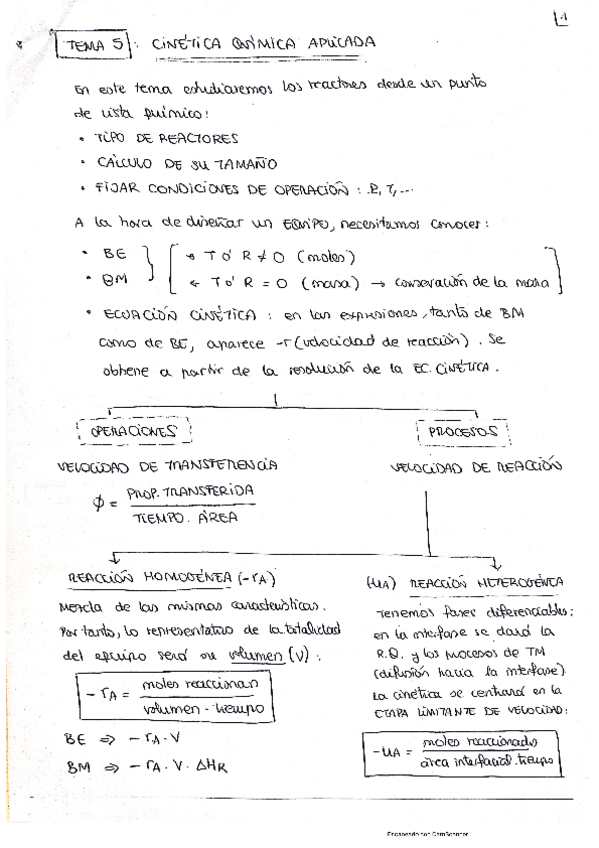 1
TEMA 5: CINÉTICA QUÍMICA APLICADA
En este tema estudiaremos los reactores desde un punto
de vista químico:
• TIPO DE REACTORES
• CÁLCULO DE SU TAMAÑO
• FIJAR CONDICIONES DE OPERACIÓN: P, T, ...
A la hora de diseñar un EQUIPO, necesitamos conocer:
• BE
T ó R ≠ 0 (moles)
• BM
T ó R = 0 (masa) → conservación de la masa
• ECUACIÓN CINÉTICA: en las expresiones, tanto de BM
como de BE, aparece -r (velocidad de reacción). Se
obtiene a partir de la resolución de la EC. CINÉTICA.
OPERACIONES
PROCESOS
VELOCIDAD DE TRANSFERENCIA
VELOCIDAD DE REACCIÓN
ϕ = PROP. TRANSFERIDA / TIEMPO. ÁREA
REACCIÓN HOMOGÉNEA (-rA)
(uA) REACCIÓN HETEROGÉNEA
Mezcla de las mismas características.
Por tanto, lo representativo de la totalidad
del equipo será su volumen (V):
Tenemos fases diferenciables:
en la interfase se dará la
R.Q. y los procesos de TM
(difusión hacia la interfase).
La cinética se centrará en la
ETAPA LIMITANTE DE VELOCIDAD:
-rA = moles reaccionan / volumen · tiempo
BE ⇒ -rA · V
BM ⇒ -rA · V · ΔHR
-uA = moles reaccionados / área interfacial · tiempo
Escaneado con CamScanner